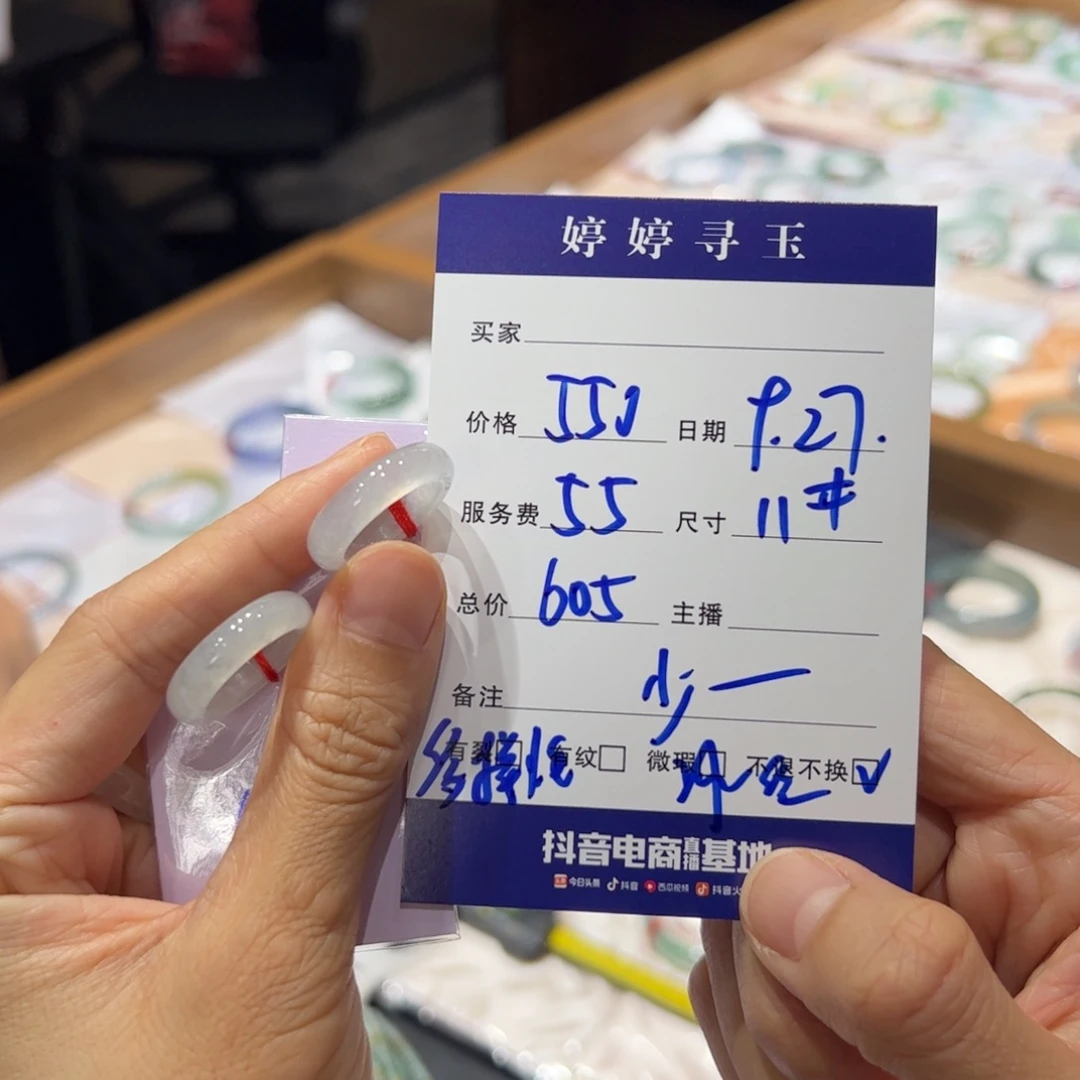 婷婷寻玉
买家
价格 550 日期 9.27.
服务费 55 尺寸 11#
总价 605 主播
备注 少一
有裂□ 有纹□ 微瑕□ 不退不换□✓
抖音电商直播基地
今日头条 抖音 西瓜视频 抖音火